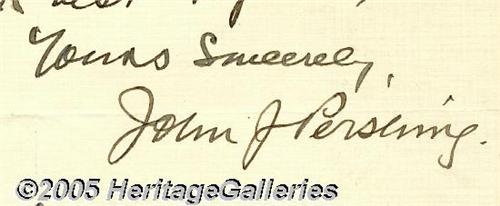 Yours Sincerely,
John J Pershing.
©2005 HeritageGalleries